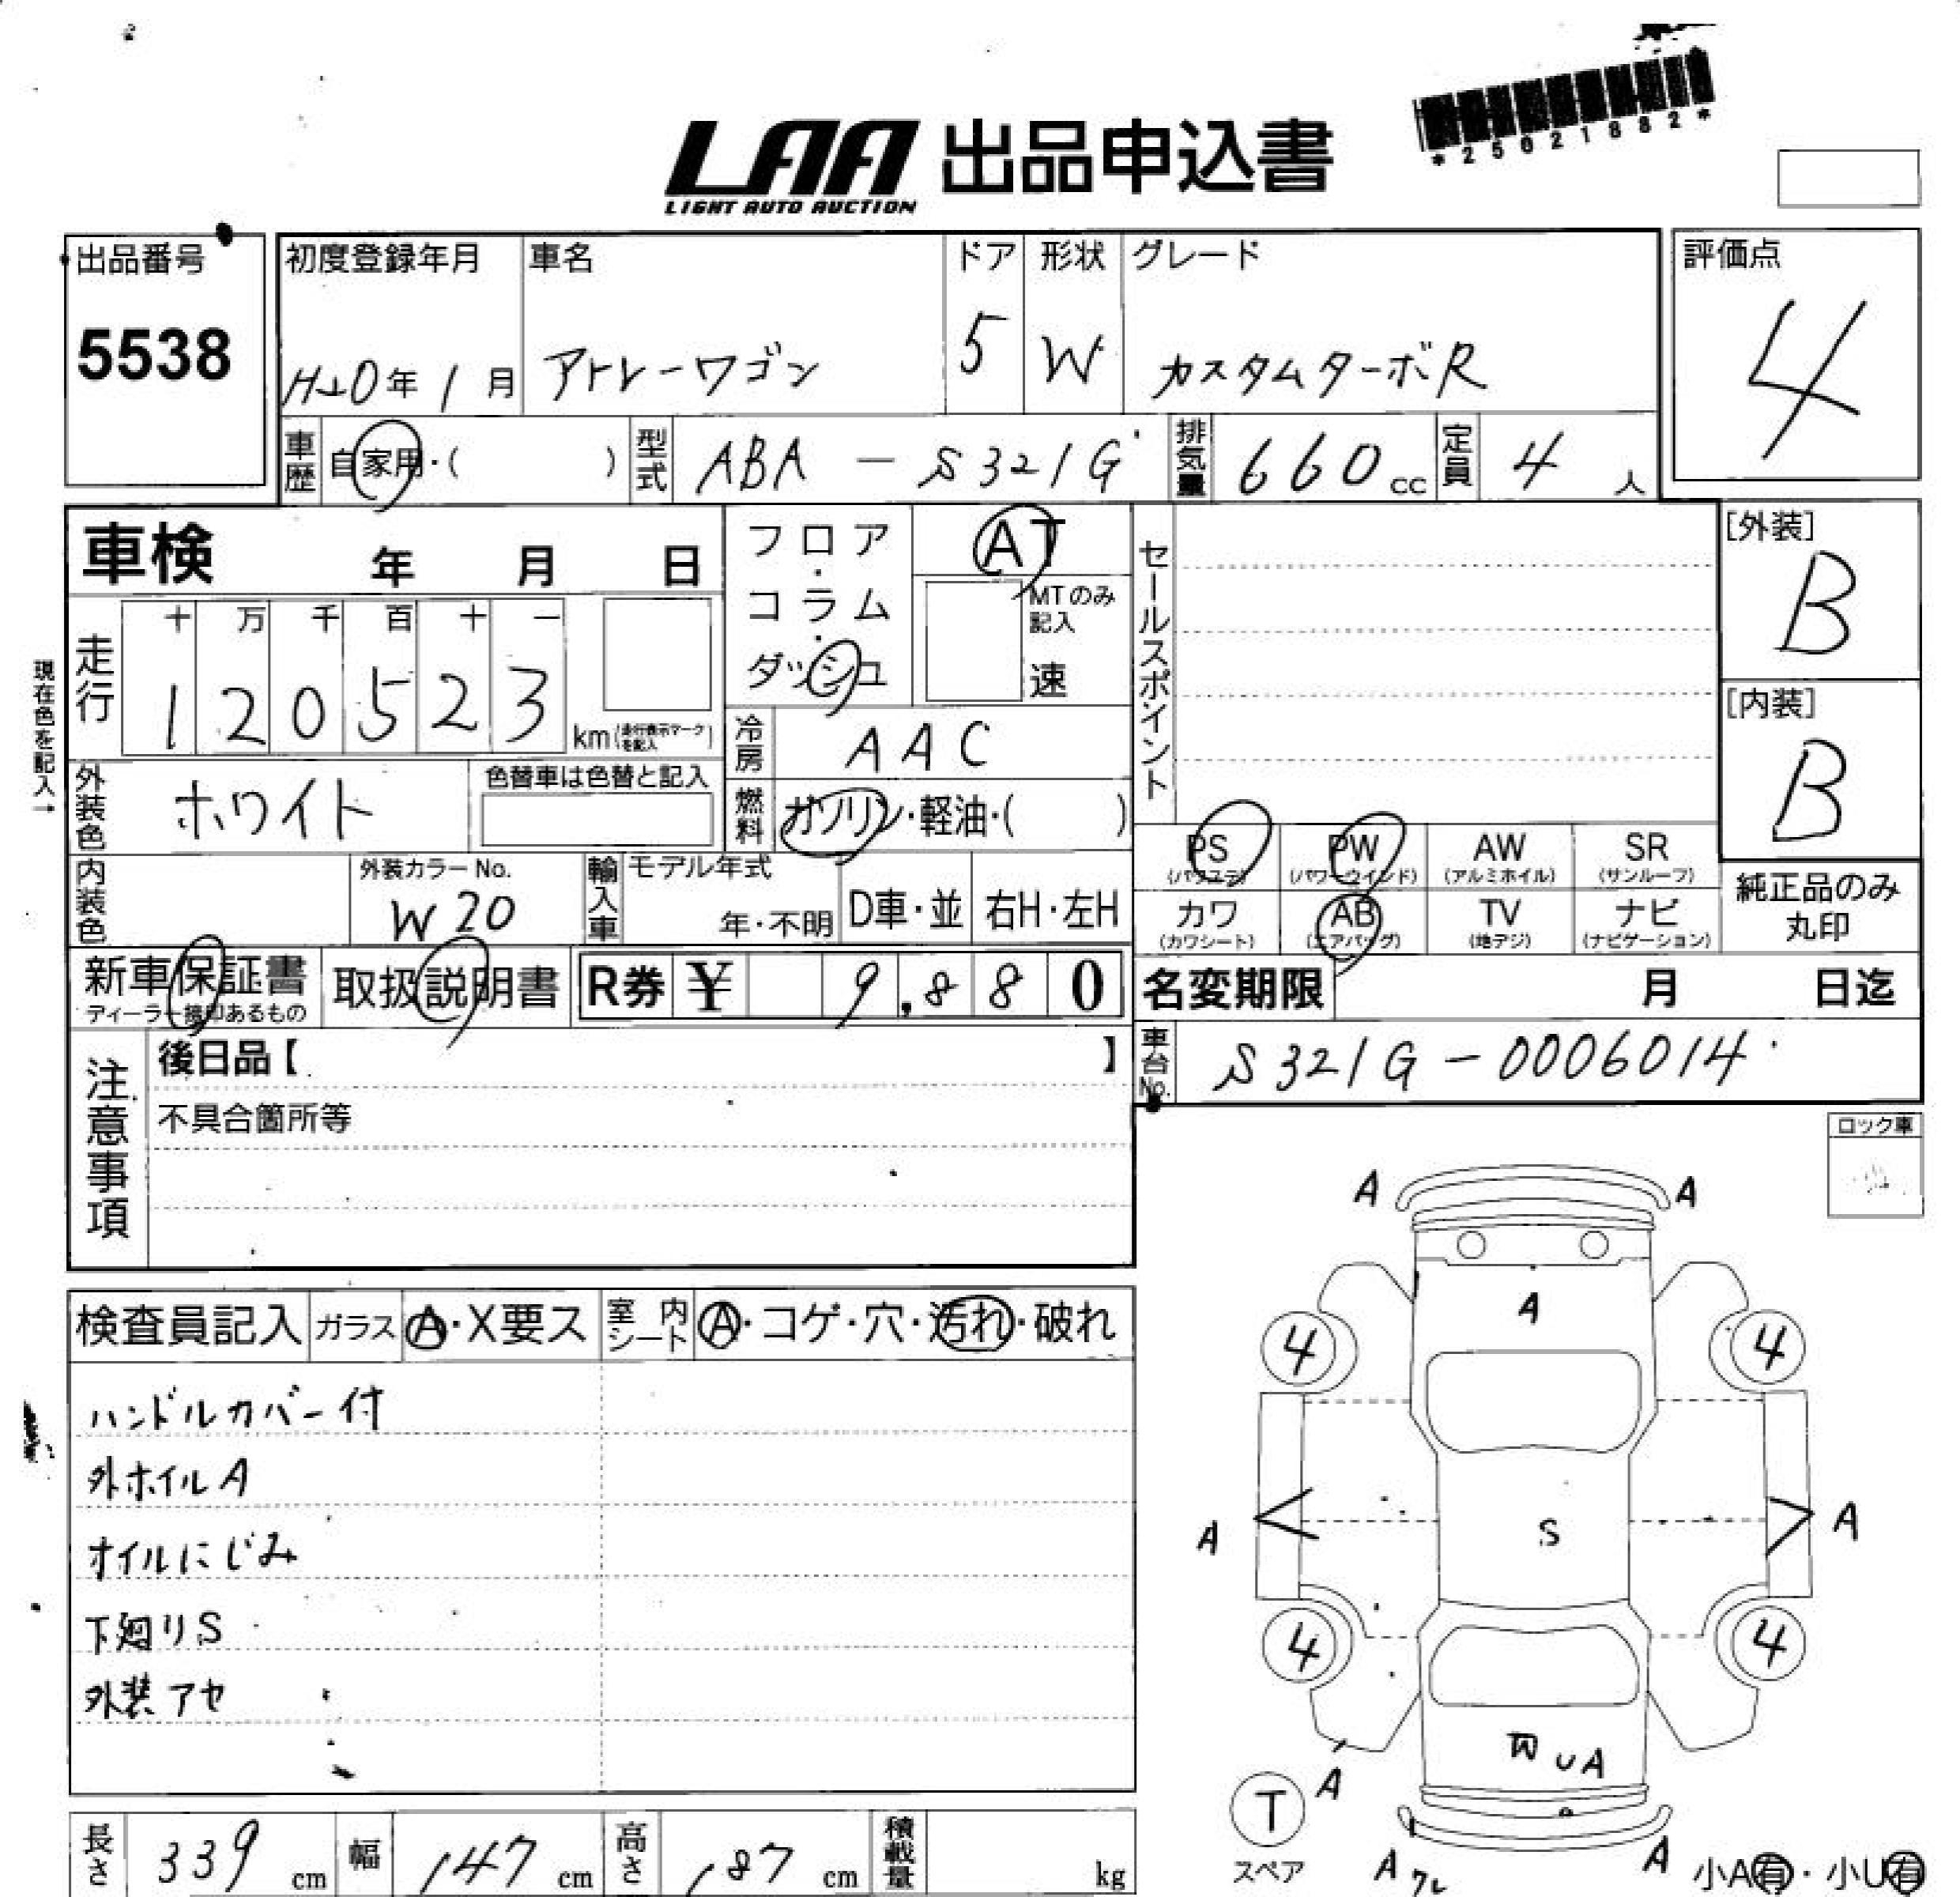 LAA 出品申込書
LIGHT AUTO AUCTION
*25021882*
出品番号
5538
初度登録年月
H20年1月
車名
アトレーワゴン
ドア
5
形状
W
グレード
カスタムターボR
評価点
4
車歴 自家用・( )
型式 ABA-S321G
排気量 660cc
定員 4人
車検 年 月 日
フロア・コラム・ダッシュ
AT
MTのみ記入
速
セールスポイント
[外装]
B
[内装]
B
現在色を記入→
走行
十 万 千 百 十 一
1 2 0 5 2 3
km(走行表示マークを記入)
冷房 AAC
外装色 ホワイト
色替車は色替と記入
燃料 ガソリン・軽油・( )
内装色
外装カラーNo.
W20
輸入車
モデル年式
年・不明
D車・並
右H・左H
PS (パワステ)
PW (パワーウインド)
AW (アルミホイル)
SR (サンルーフ)
カワ (カワシート)
AB (エアバッグ)
TV (地デジ)
ナビ (ナビゲーション)
純正品のみ
丸印
新車保証書
ディーラー捺印あるもの
取扱説明書
R券 ¥ 9,880
名変期限 月 日迄
車台No. S321G-0006014
注意事項
後日品【 】
不具合箇所等
ロック車
検査員記入
ガラス A・X要ス
室内シート A・コゲ・穴・汚れ・破れ
ハンドルカバー付
外ホイルA
オイルにじみ
下廻りS
外装アセ
A A
A
4 4
A S A
4 4
UA
A
T
スペア
A
A
小A有・小U有
長さ 339cm
幅 147cm
高さ 187cm
積載量 kg